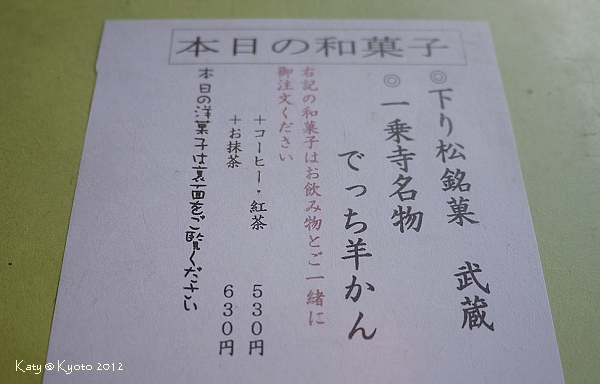 本日の和菓子
◎下り松銘菓　武蔵
◎一乗寺名物
でっち羊かん
右記の和菓子はお飲み物とご一緒に
御注文ください
＋コーヒー・紅茶　５３０円
＋お抹茶　６３０円
本日の洋菓子は裏面をご覧ください
Katy @ Kyoto 2012